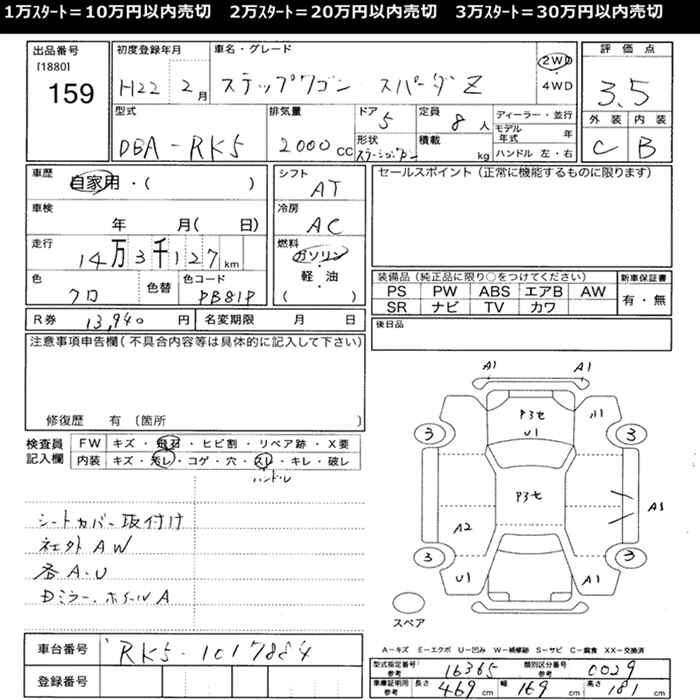 1万スタート=10万円以内売切　2万スタート=20万円以内売切　3万スタート=30万円以内売切
出品番号
[1880]
159
初度登録年月
H22 2月
車名・グレード
ステップワゴン スパーダZ
2WD
・
4WD
評価点
3.5
外装 内装
C B
型式
DBA-RK5
排気量
2000 CC
ドア 5
形状
ステーションワゴン
定員 8人
積載 kg
ディーラー・並行
モデル年式 年
ハンドル 左・右
車歴
自家用・( )
車検
年 月( 日)
走行
14万3千127km
色
クロ
色替
色コード
PB81P
シフト
AT
冷房
AC
燃料
ガソリン
・
軽・油
( )
セールスポイント(正常に機能するものに限ります)
装備品(純正品に限り○をつけてください)
PS PW ABS エアB AW
SR ナビ TV カワ
新車保証書
有・無
R券 13,940円
名変期限 月 日
後日品
注意事項申告欄(不具合内容等は具体的に記入して下さい)
修復歴 有 (箇所 )
検査員記入欄
FW キズ・飛石・ヒビ割・リペア跡・X要
内装 キズ・汚レ・コゲ・穴・スレ・キレ・破レ
ハンドル
シートカバー取付け
社外AW
各A.U
Dミラー.ホイールA
A1 A1
P3セ
U1
A1
3 3
P3セ
A2
A3
3 3
U1 A1
スペア
A-キズ E-エクボ U-凹み W-補修跡 S-サビ C-腐食 XX-交換済
車台番号
RK5-1017884
登録番号
型式指定番号
参考
16365
類別区分番号
参考
0029
車庫証明用
参考
長さ 469cm
幅 169cm
高さ 181cm